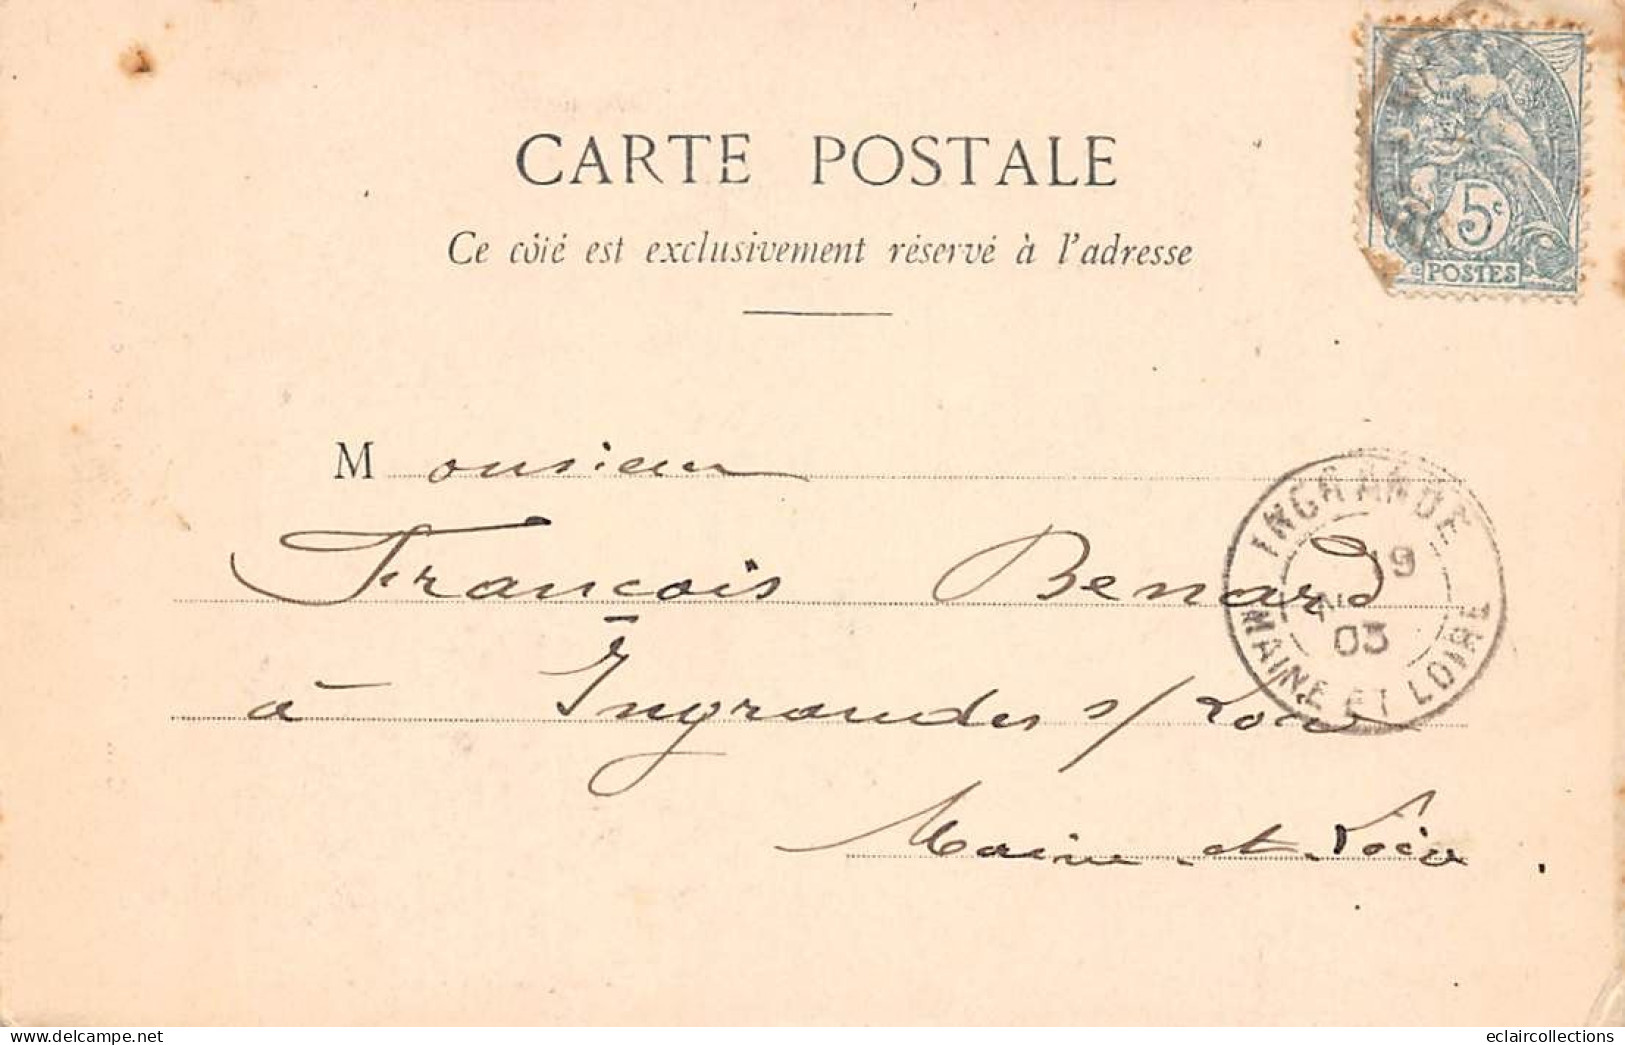 CARTE POSTALE
Ce côté est exclusivement réservé à l'adresse
5c
POSTES
Monsieur
François Benard
à Ingrandes s/Loire
Maine-et-Loire.
INGRANDE
19
03
MAINE ET LOIRE
https://www.delcampe.net
eclaircollections